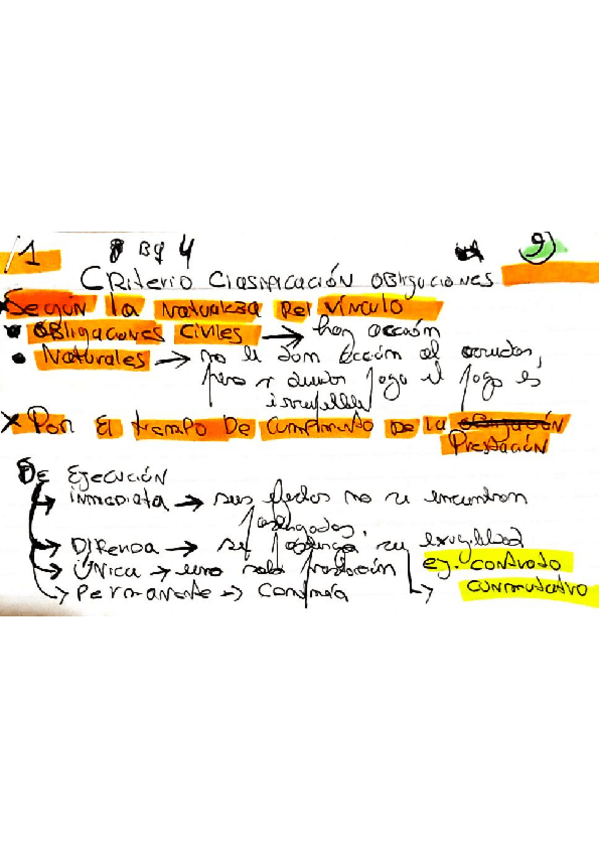 1 B4 9
CRiterio Clasificación obligaciones
Según la naturaleza del vínculo
• OBligaciones civiles → hay acción
• Naturales → no le dan acción al acreedor,
pero si deudor paga el pago es
irrepetible
x Por El tiempo De cumplimento de la obligación
Prestación
De Ejecución
→ inmediata → sus efectos no se encuentran
postergados.
→ Diferida → se posterga su exigibilidad
→ única → una sola prestación ej. contrato
→ Permanente → continúa → conmutativo